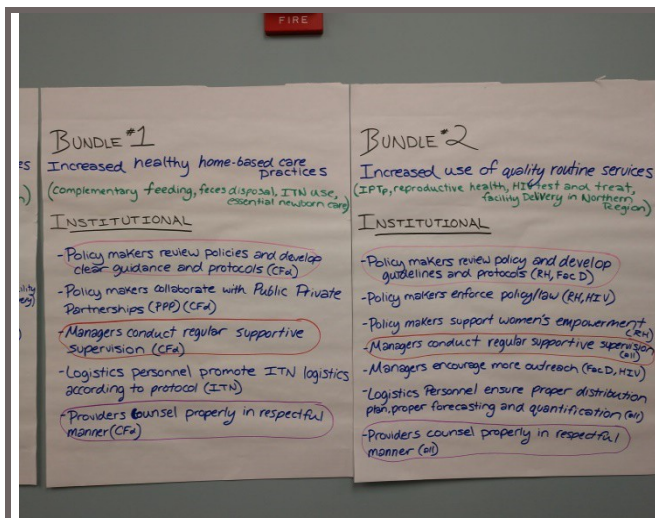 FIRE
BUNDLE #1
Increased healthy home-based care
practices
(complementary feeding, feces disposal, ITN use,
essential newborn care)
INSTITUTIONAL
-Policy makers review policies and develop
clear guidance and protocols (CFα)
-Policy makers collaborate with Public Private
Partnerships (PPP) (CFα)
-Managers conduct regular supportive
supervision (CFα)
-Logistics personnel promote ITN logistics
according to protocol (ITN)
-Providers counsel properly in respectful
manner (CFα)
BUNDLE #2
Increased use of quality routine services
(IPTp, reproductive health, HIV test and treat,
facility Delivery in Northern
Region)
INSTITUTIONAL
-Policy makers review policy and develop
guidelines and protocols (RH, Fac D)
-Policy makers enforce policy/law (RH, HIV)
-Policy makers support women's empowerment
(RH)
-Managers conduct regular supportive supervision
(all)
-Managers encourage more outreach (Fac D, HIV)
-Logistics Personnel ensure proper distribution
plan, proper forecasting and quantification (all)
-Providers counsel properly in respectful
manner (all)